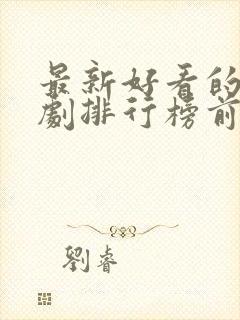 最新好看的
劇排行榜前
劉睿